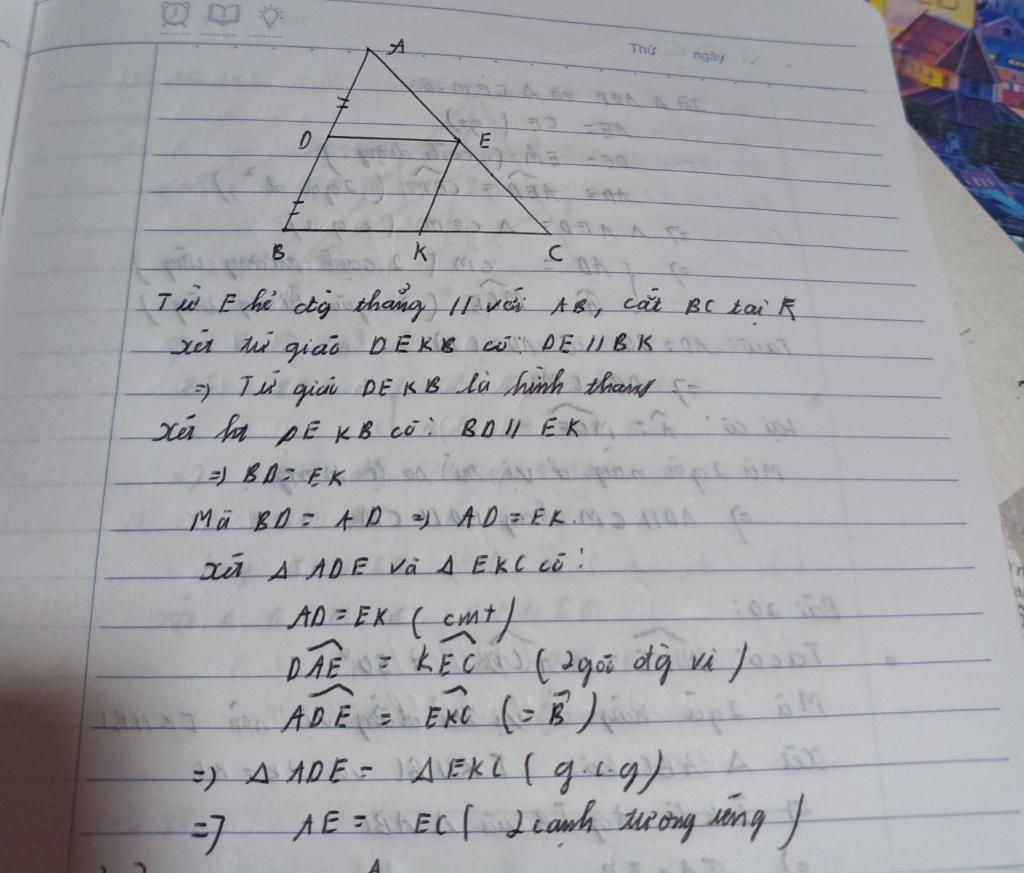 Thứ ngày
A
D E
B K C
Từ E kẻ đg thẳng // với AB, cắt BC tại K
Xét tứ giác DEKB có: DE // BK
=> Tứ giác DEKB là hình thang
Xét ht DEKB có: BD // EK
=> BD = EK
Mà BD = AD => AD = EK.
Xét Δ ADE và Δ EKC có:
AD = EK ( cmt )
DAE = KEC ( 2 góc đg vị )
ADE = EKC ( = B )
=> Δ ADE = Δ EKC ( g.c.g )
=> AE = EC ( 2 cạnh tương ứng )
A